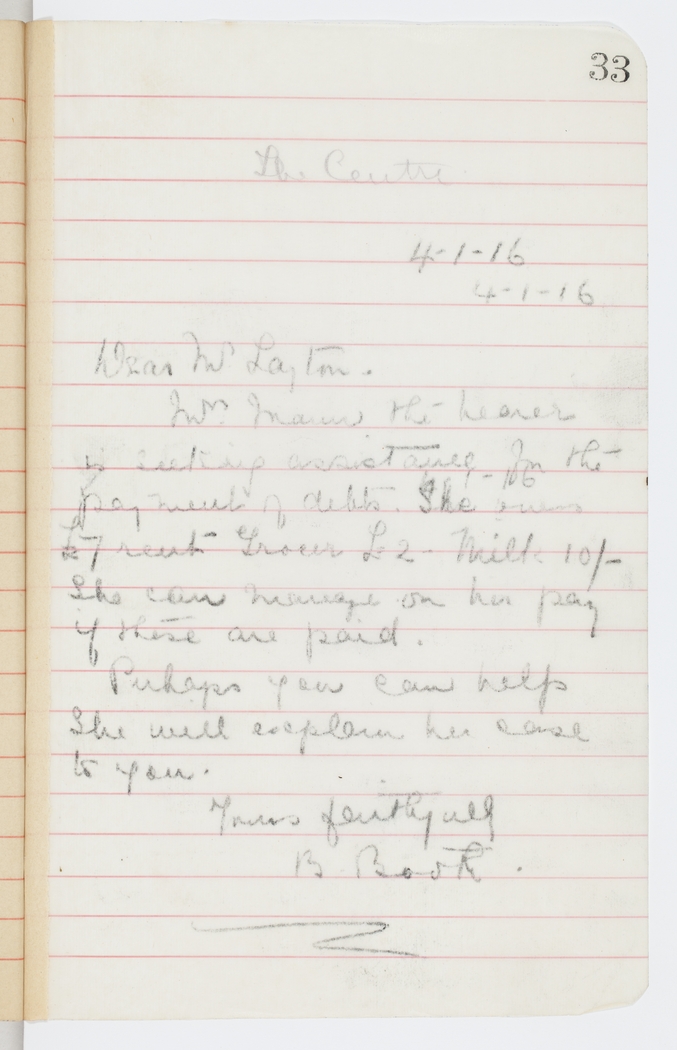 33
The Centre
4-1-16
4-1-16
Dear Mr Layton.
Mrs Mann the bearer
is seeking assistance for the
payment of debts. She owes
£7 rent Grocer £2- Milk 10/-
She can manage on her pay
if these are paid.
Perhaps you can help
She will explain her case
to you.
Yours faithfully
B Booth.